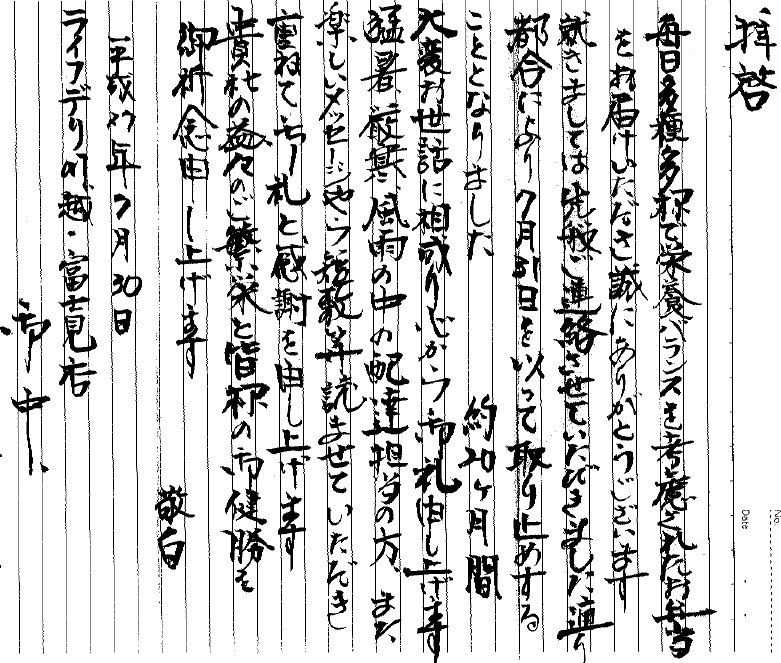 No.
Date
拝啓
毎日多種多様で栄養バランスを考慮されたお弁当
をお届けいただき誠にありがとうございます
就きましては先般ご連絡させていただきました通り
都合により7月31日を以って取り止めする
こととなりました 約20ヶ月間
大変お世話に相成り心から御礼申し上げます
猛暑、厳寒、風雨の中の配達担当の方、また、
楽しいメッセージや等読ませていただきし
重ねて御礼と感謝を申し上げます
貴社の益々のご繁栄と皆様の御健勝を
御祈念申し上げます
敬白
平成27年7月30日
ライフデリ川越・富士見店
御中